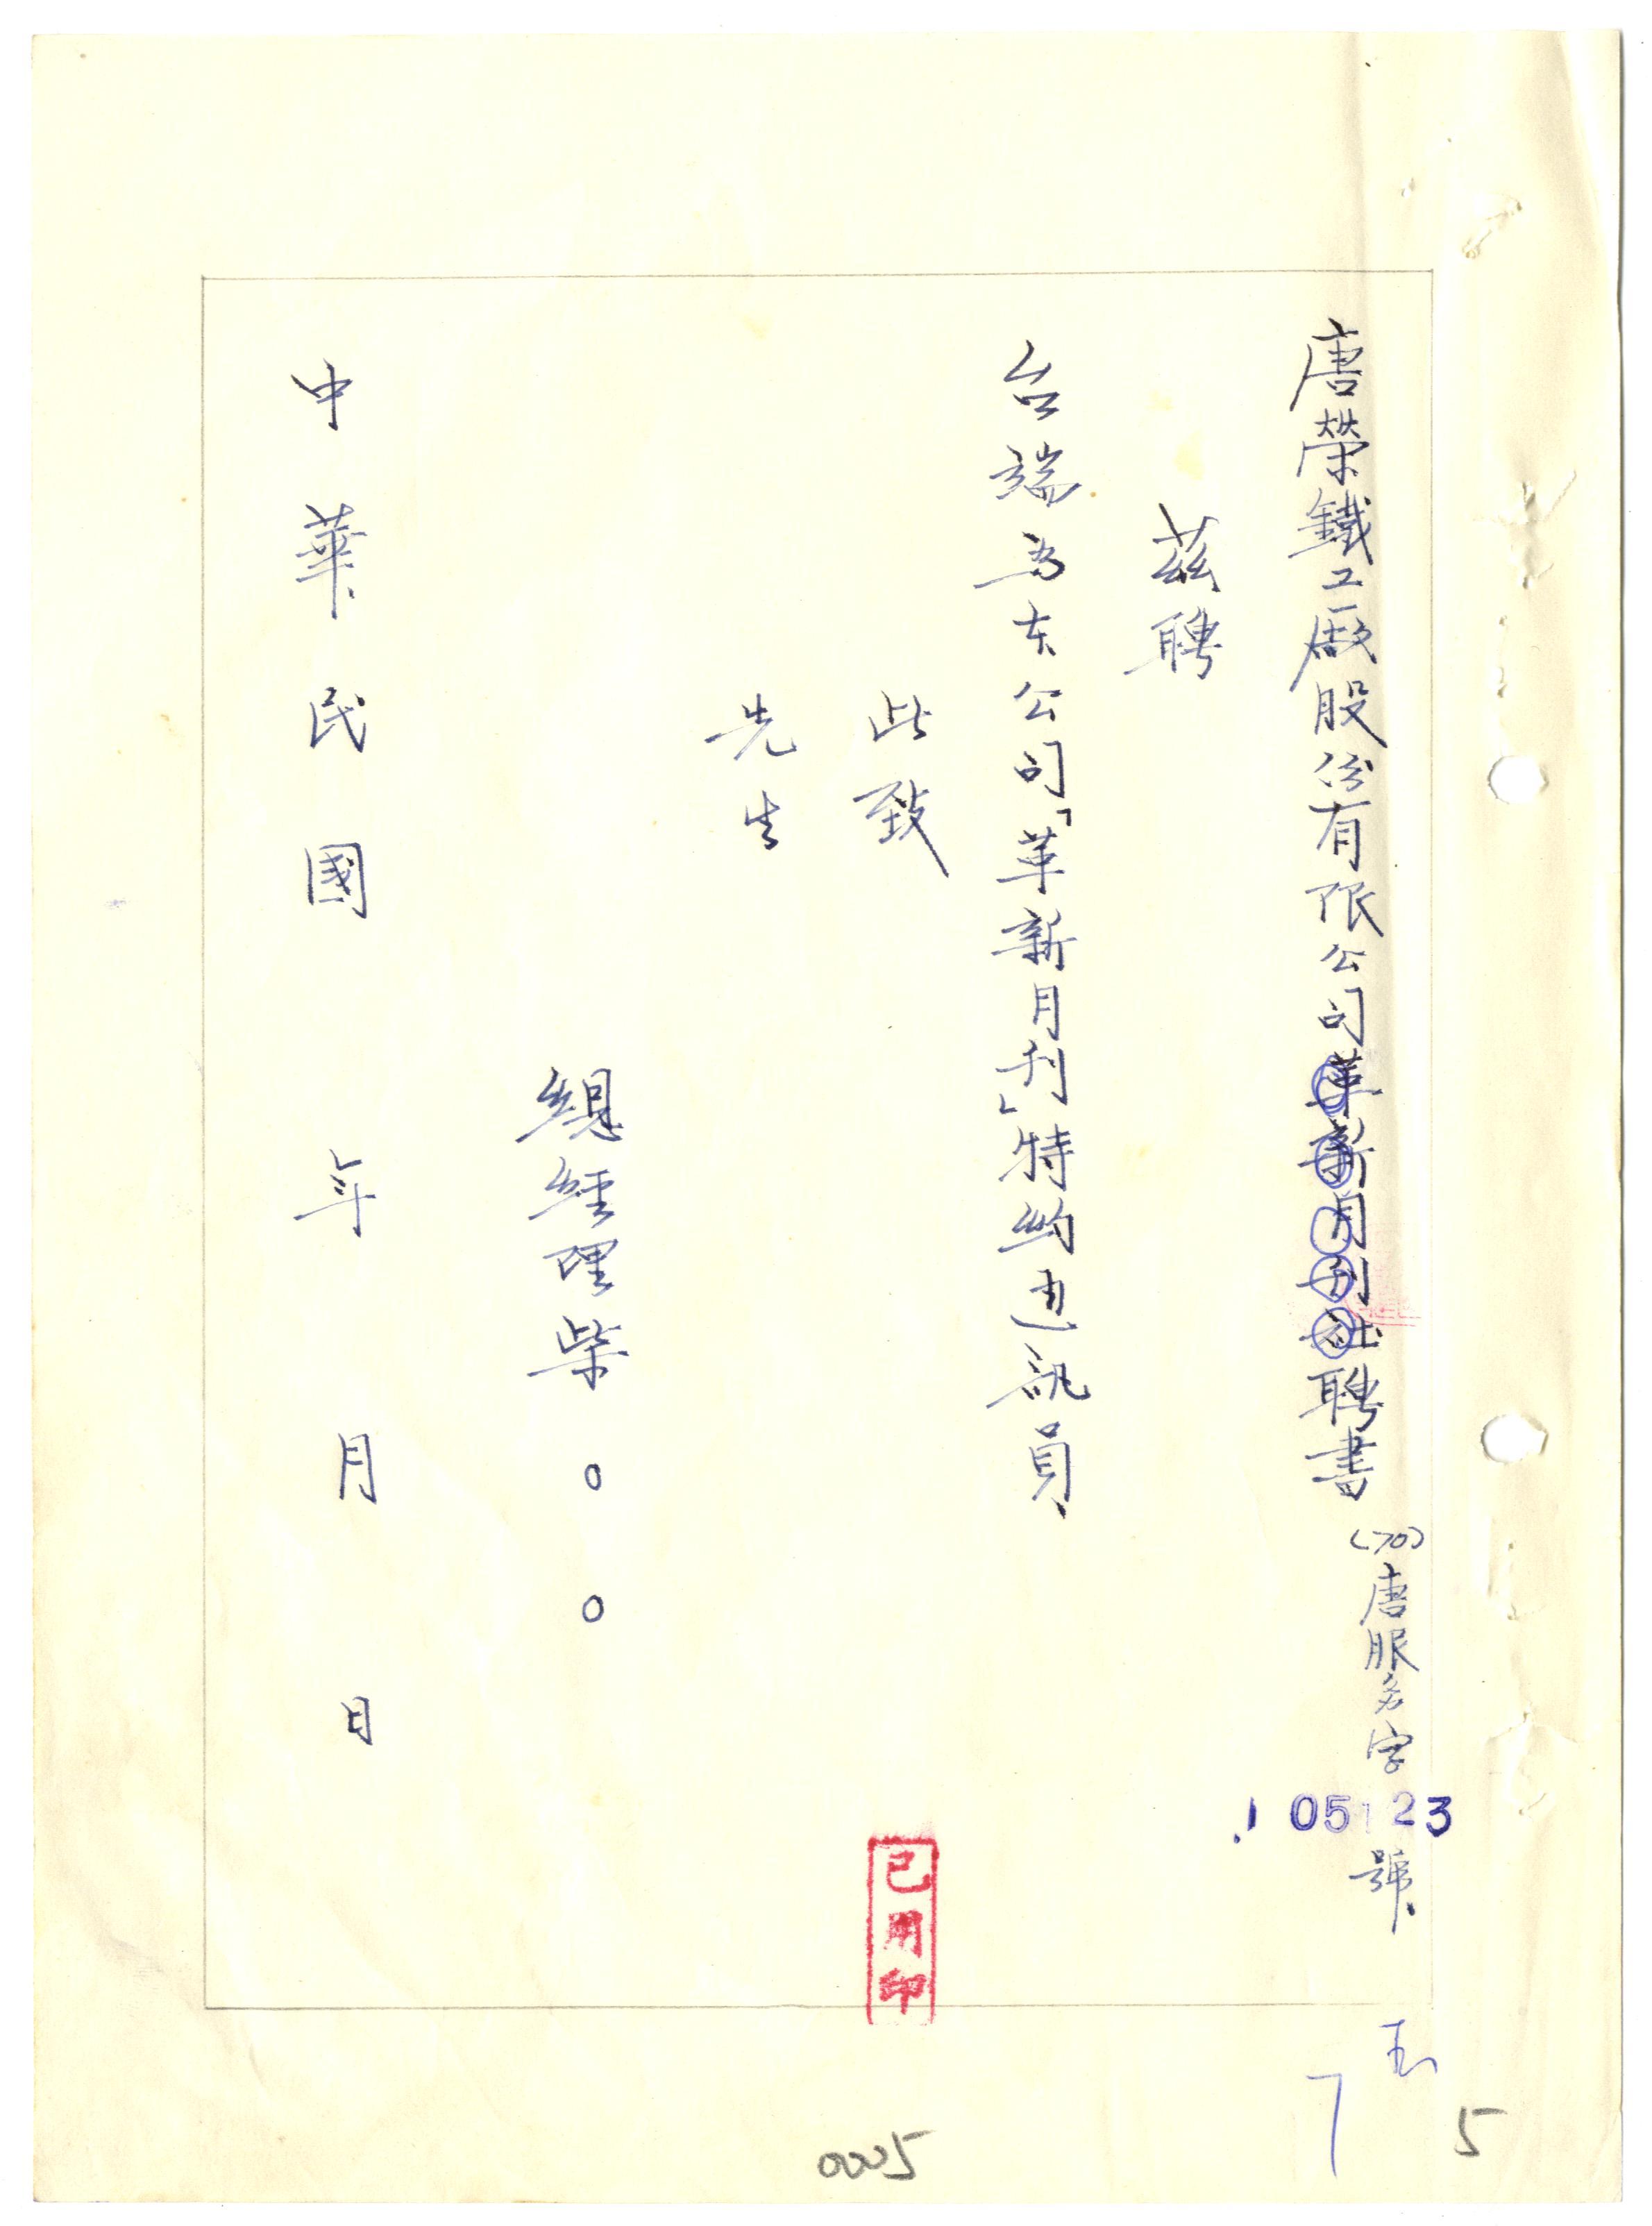 唐榮鐵工廠股份有限公司革新月刊社聘書
(70)唐服名字
105123
號
茲聘
台端為本公司「革新月刊」特約通訊員
此致
先生
總經理柴○○
中華民國 年 月 日
已用印
7
5
0005